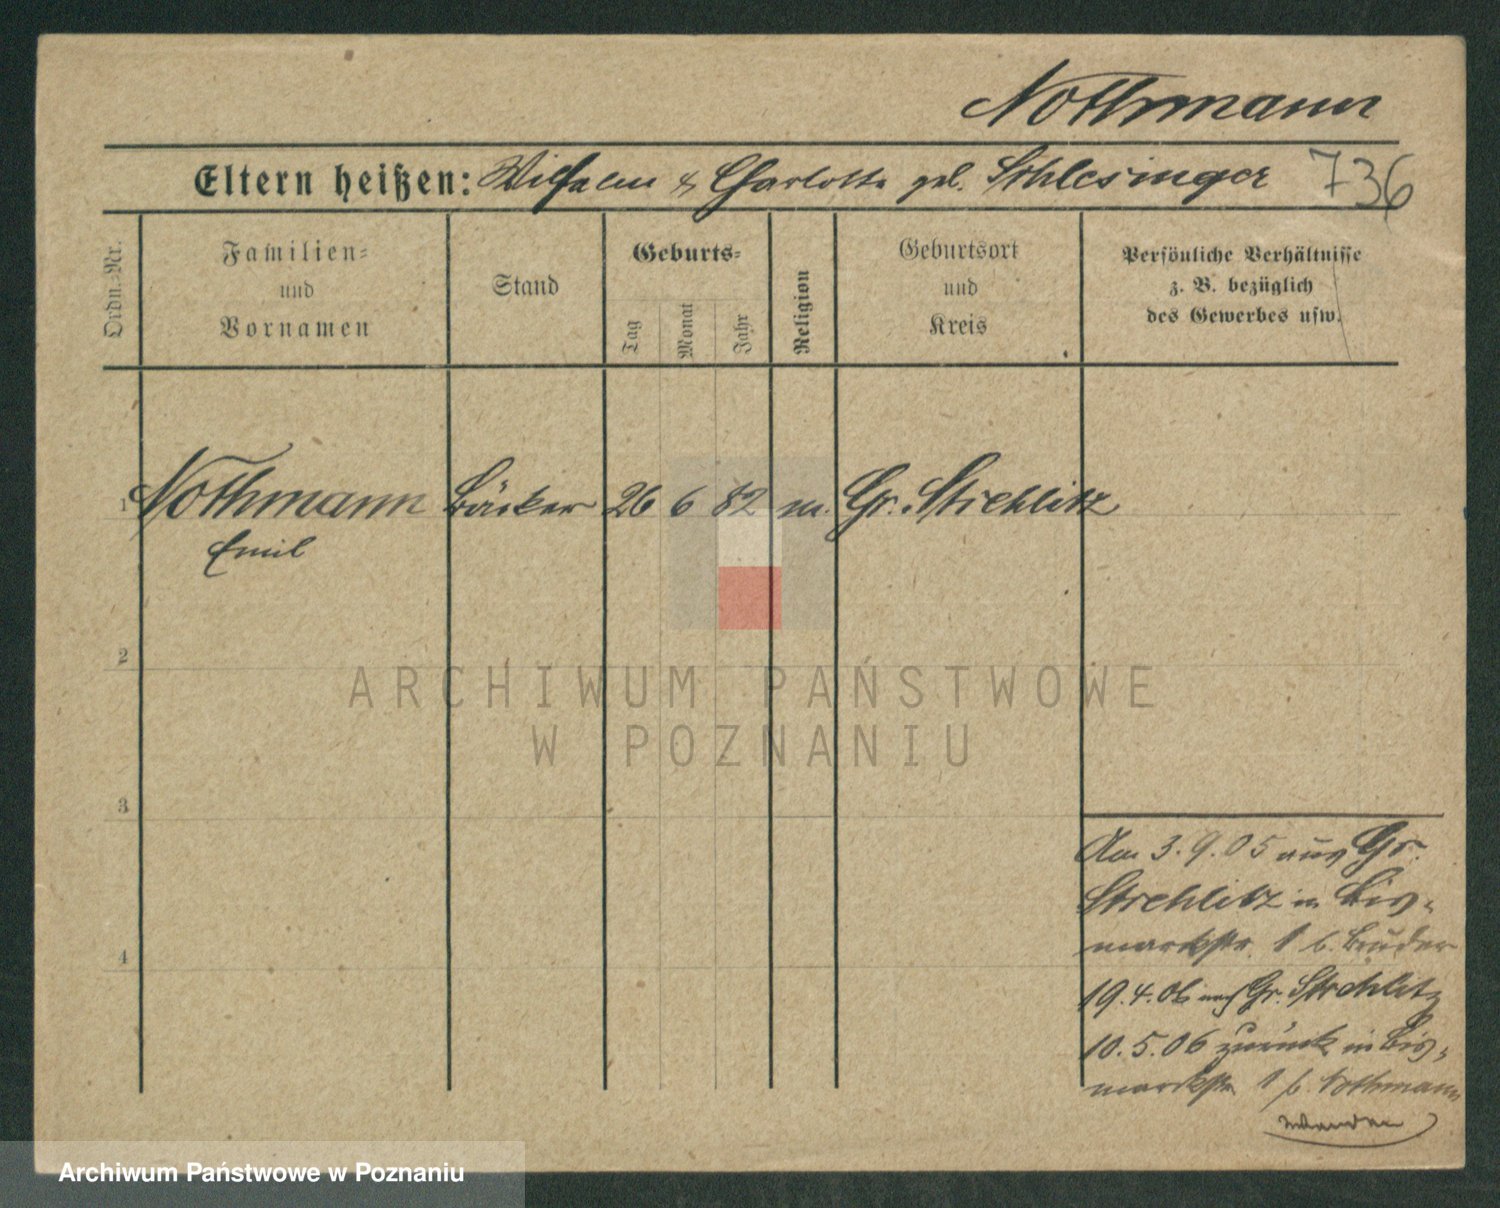 Nothmann
Eltern heißen: Wilhelm & Charlotte geb. Schlesinger 736
Ordn.-Nr.
Familien-
und
Vornamen
Stand
Geburts-
Tag
Monat
Jahr
Religion
Geburtsort
und
Kreis
Persönliche Verhältnisse
z. B. bezüglich
des Gewerbes usw.
1 Nothmann Bäcker 26 6 82 m. Gr. Strehlitz
Emil
2
3
4
Am 3.9.05 aus Gr.
Strehlitz in Bis-
marckstr. 1 b. Bruder
19.4.06 nach Gr. Strehlitz
10.5.06 zurück in Bis-
marckstr. 1 b. Nothmann
ARCHIWUM PAŃSTWOWE
W POZNANIU
Archiwum Państwowe w Poznaniu